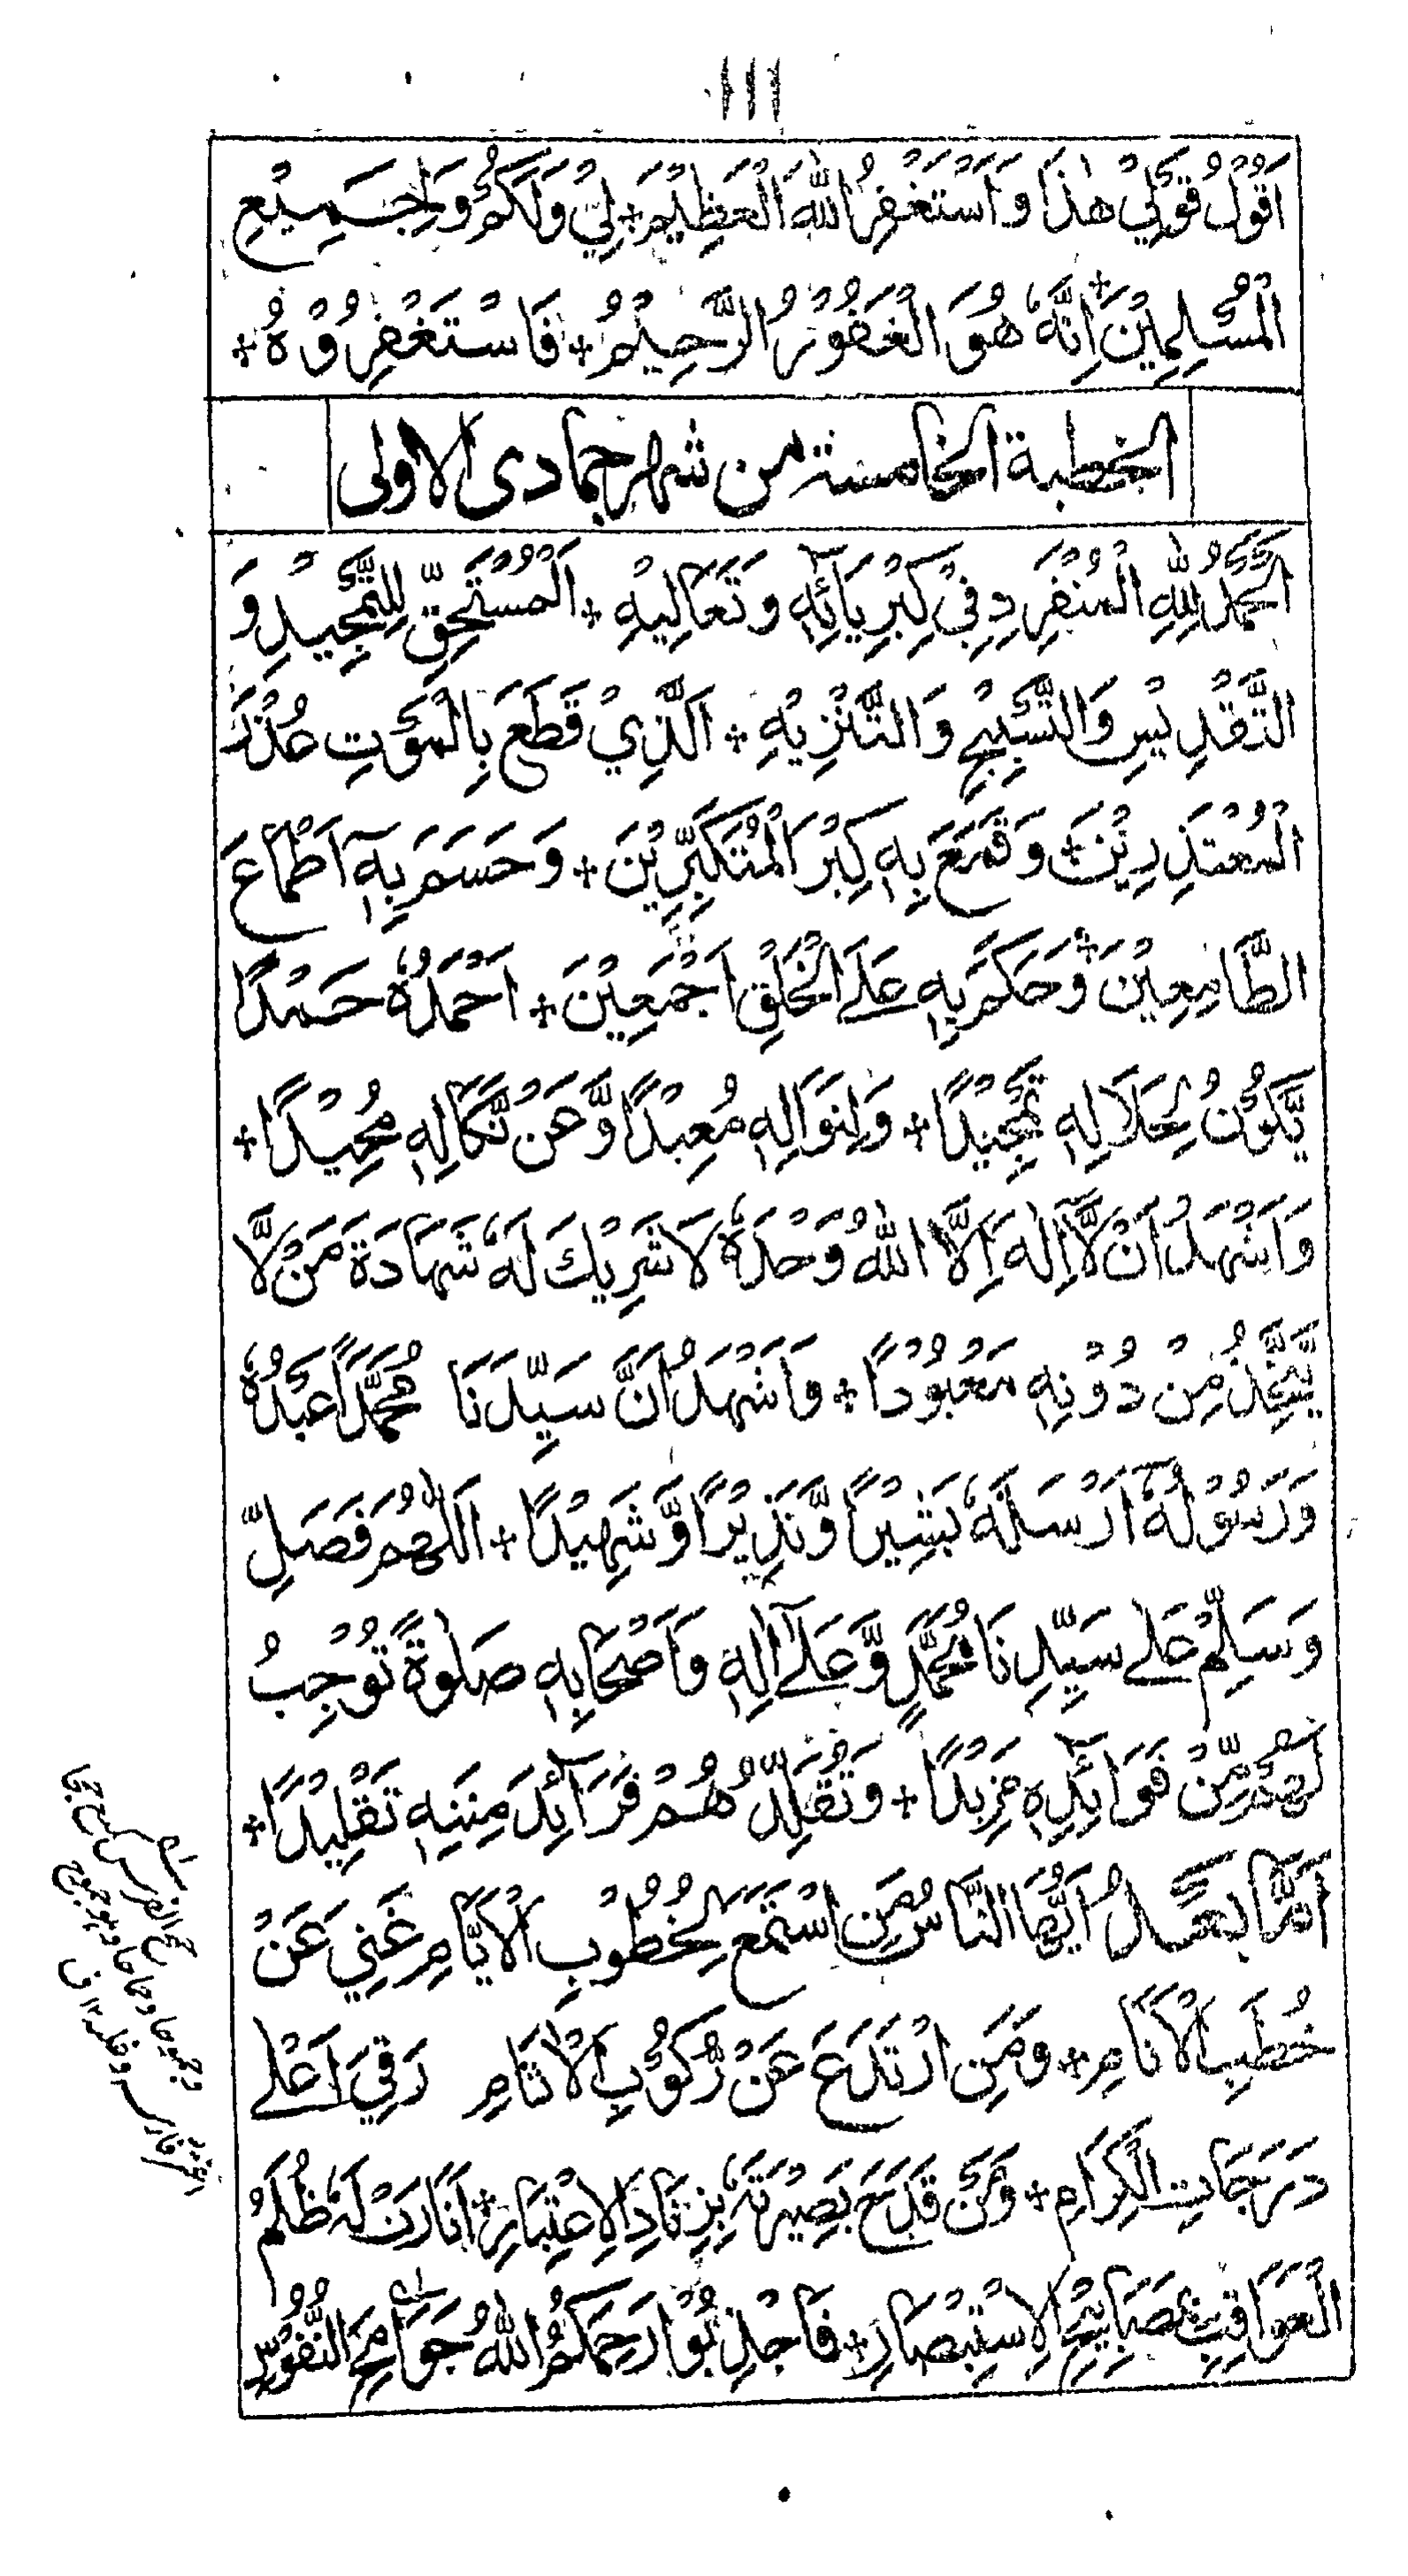 ١١١
اَقُوْلُ قَوْلِیْ هٰذَا وَاَسْتَغْفِرُ اللّٰهَ الْعَظِیْمَ + لِیْ وَلَکُمْ وَلِجَمِیْعِ
الْمُسْلِمِیْنَ + اِنَّهٗ هُوَ الْغَفُوْرُ الرَّحِیْمُ + فَاسْتَغْفِرُوْهُ +
الخطبة الخامسة من شهر جمادی الاولی
اَلْحَمْدُ لِلّٰهِ الْمُنْفَرِدِ فِیْ کِبْرِیَآئِهٖ وَتَعَالِیْهِ + اَلْمُسْتَحِقِّ لِلتَّمْجِیْدِ وَ
التَّقْدِیْسِ وَالتَّسْبِیْحِ وَالتَّنْزِیْهِ + اَلَّذِیْ قَطَعَ بِالْمَوْتِ عُذْرَ
الْمُعْتَذِرِیْنَ + وَقَمَعَ بِهٖ کِبْرَ الْمُتَکَبِّرِیْنَ + وَحَسَمَ بِهٖٓ اَطْمَاعَ
الطَّامِعِیْنَ + وَحَکَمَ بِهٖ عَلَی الْخَلْقِ اَجْمَعِیْنَ + اَحْمَدُهٗ حَمْدًا
یَّکُوْنُ لِجَلَالِهٖ تَمْجِیْدًا + وَلِنَوَالِهٖ مُعِیْدًا وَّعَنْ نَّکَالِهٖ مُحِیْدًا +
وَاَشْهَدُ اَنْ لَّآ اِلٰهَ اِلَّا اللّٰهُ وَحْدَهٗ لَا شَرِیْكَ لَهٗ شَهَادَةَ مَنْ لَّا
یَتَّخِذُ مِنْ دُوْنِهٖ مَعْبُوْدًا + وَاَشْهَدُ اَنَّ سَیِّدَنَا مُحَمَّدًا عَبْدُهٗ
وَرَسُوْلُهٗٓ اَرْسَلَهٗ بَشِیْرًا وَّنَذِیْرًا وَّشَهِیْدًا + اَللّٰهُمَّ فَصَلِّ
وَسَلِّمْ عَلٰی سَیِّدِنَا مُحَمَّدٍ وَّعَلٰٓی اٰلِهٖ وَاَصْحَابِهٖ صَلٰوةً تُوْجِبُ
لَهُمْ مِّنْ فَوَآئِدِهٖ مَزِیْدًا + وَتُقَلِّدُهُمْ فَرَآئِدَ مِنَنِهٖ تَقْلِیْدًا +
اَمَّا بَعْدُ اَیُّهَا النَّاسُ مَنِ اسْتَمَعَ لِخُطُوْبِ الْاَیَّامِ غَنِیَ عَنْ
خُطَبِ الْاَنَامِ + وَمَنِ ارْتَدَعَ عَنْ رُّکُوْبِ الْاٰثَامِ رَقِیَ اَعْلٰی
دَرَجَاتِ الْکِرَامِ + وَمَنْ قَدَحَ بَصِیْرَتَهٗ بِزِنَادِ الْاِعْتِبَارِ + اَنَارَتْ لَهٗ ظُلَمُ
الْعَوَاقِبِ بِمَصَابِیْحِ الْاِسْتِبْصَارِ + فَاجْذِبُوْا رَحِمَکُمُ اللّٰهُ جَوَامِحَ النُّفُوْسِ